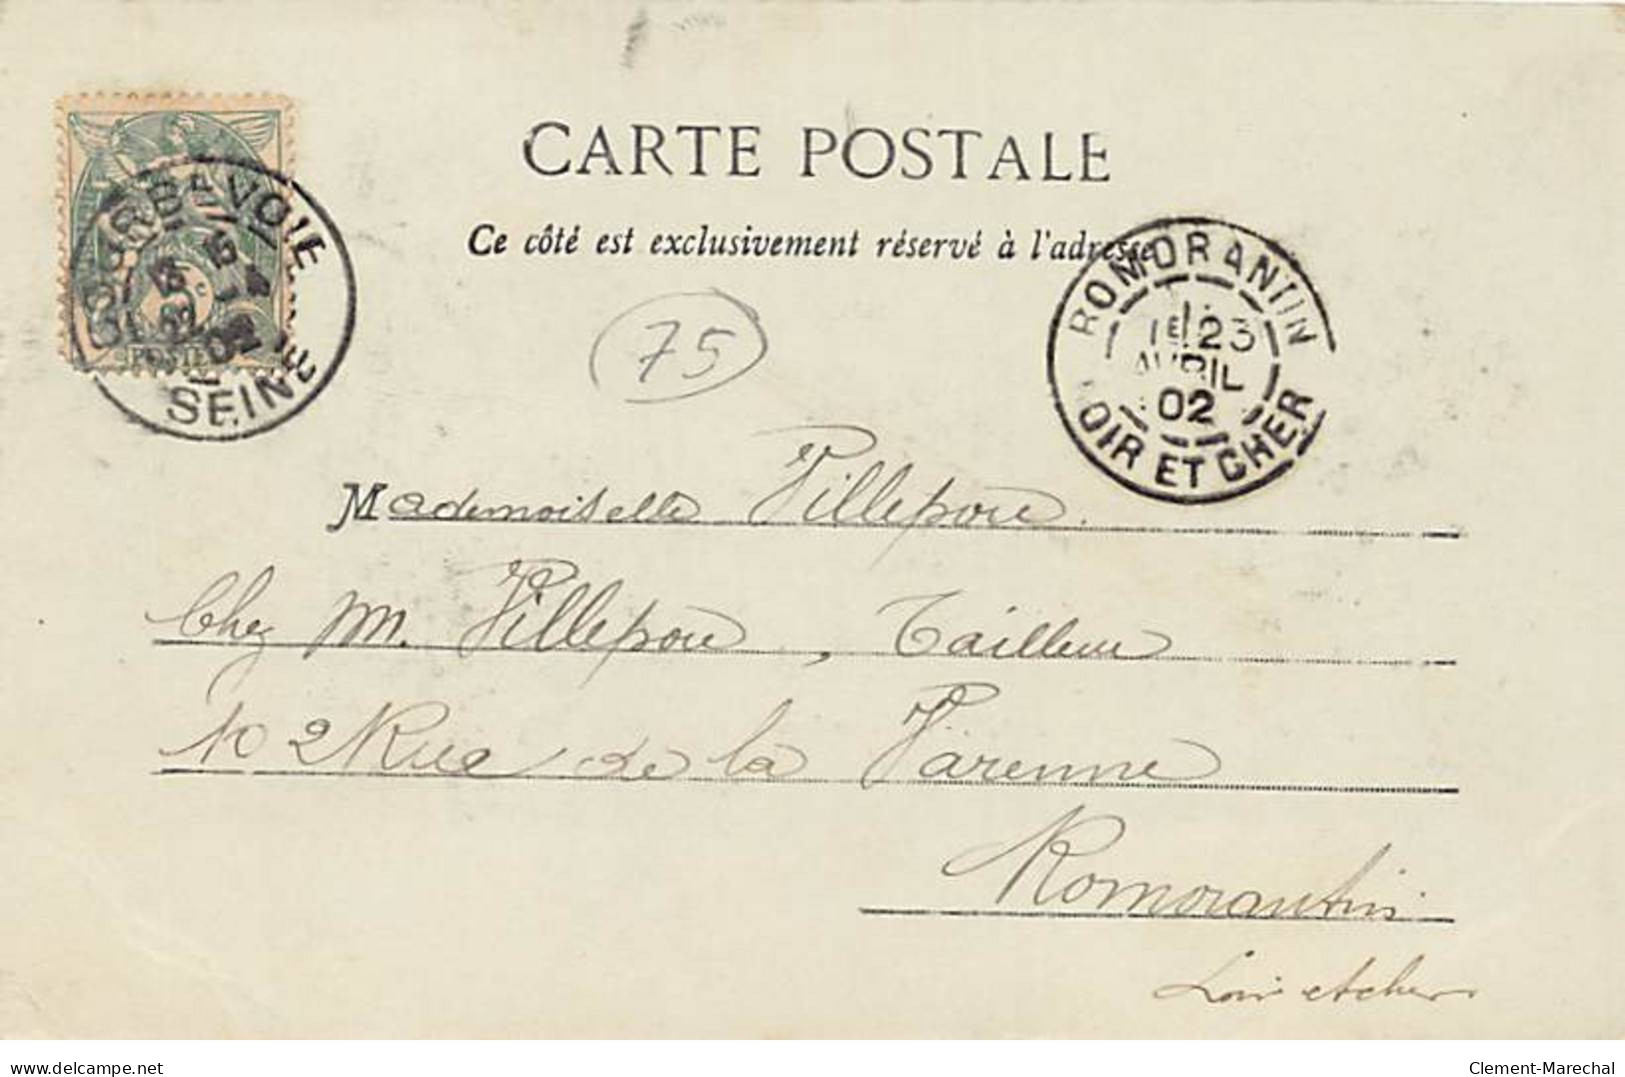 CARTE POSTALE
Ce côté est exclusivement réservé à l'adresse
COURBEVOIE
15
4
02
SEINE
POSTE
75
ROMORANTIN
1E 23
AVRIL
02
LOIR ET CHER
Mademoiselle Villepou
Chez M. Villepou, Tailleur
102 Rue de la Varenne
Romorantin
Loir et cher
delcampe.net
Clement-Marechal